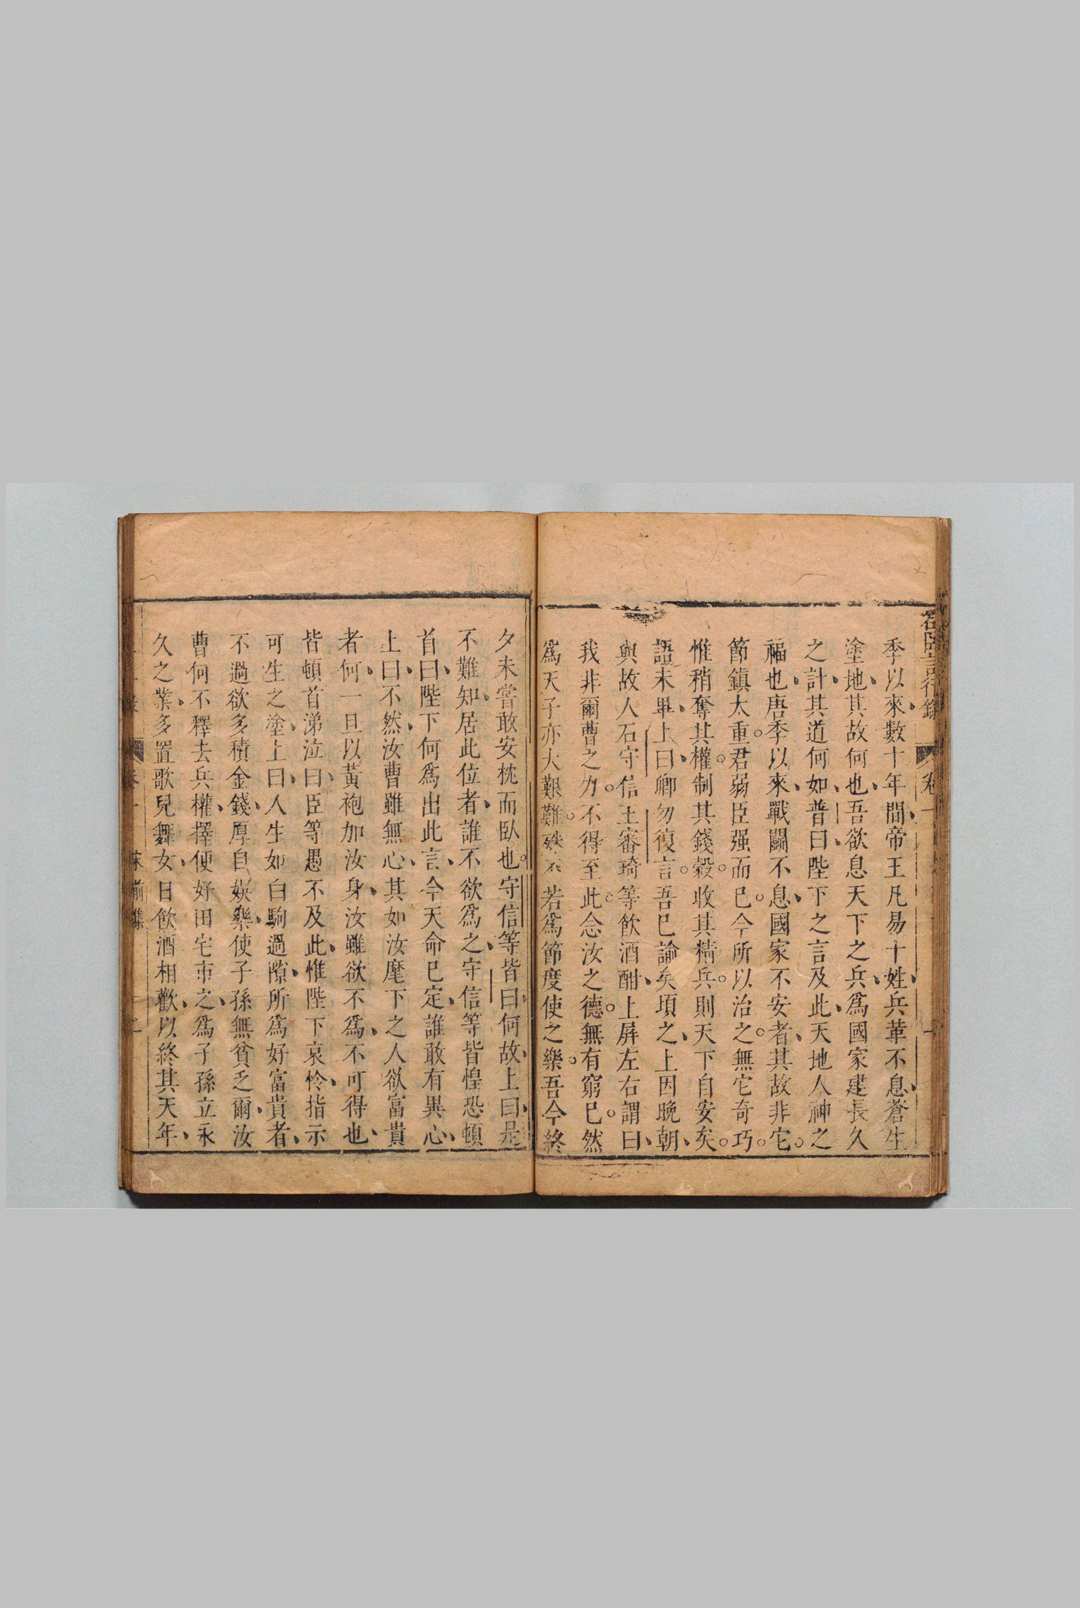 季以來數十年間帝王凡易十姓兵革不息蒼生
塗地其故何也吾欲息天下之兵爲國家建長久
之計其道何如普曰陛下之言及此天地人神之
福也唐季以來戰鬬不息國家不安者其故非它
節鎮太重君弱臣强而已今所以治之無它奇巧
惟稍奪其權制其錢穀收其精兵則天下自安矣
語未畢上曰卿勿復言吾已諭矣頃之上因晚朝
與故人石守信王審琦等飲酒酣上屏左右謂曰
我非爾曹之力不得至此念汝之德無有窮已然
爲天子亦大艱難殊不若爲節度使之樂吾今終
夕未嘗敢安枕而臥也守信等皆曰何故上曰是
不難知居此位者誰不欲爲之守信等皆惶恐頓
首曰陛下何爲出此言今天命已定誰敢有異心
上曰不然汝曹雖無心其如汝麾下之人欲富貴
者何一旦以黃袍加汝身汝雖欲不爲不可得也
皆頓首涕泣曰臣等愚不及此惟陛下哀怜指示
可生之塗上曰人生如白駒過隙所爲好富貴者
不過欲多積金錢厚自娛樂使子孫無貧乏爾汝
曹何不釋去兵權擇便好田宅市之爲子孫立永
久之業多置歌兒舞女日飲酒相歡以終其天年